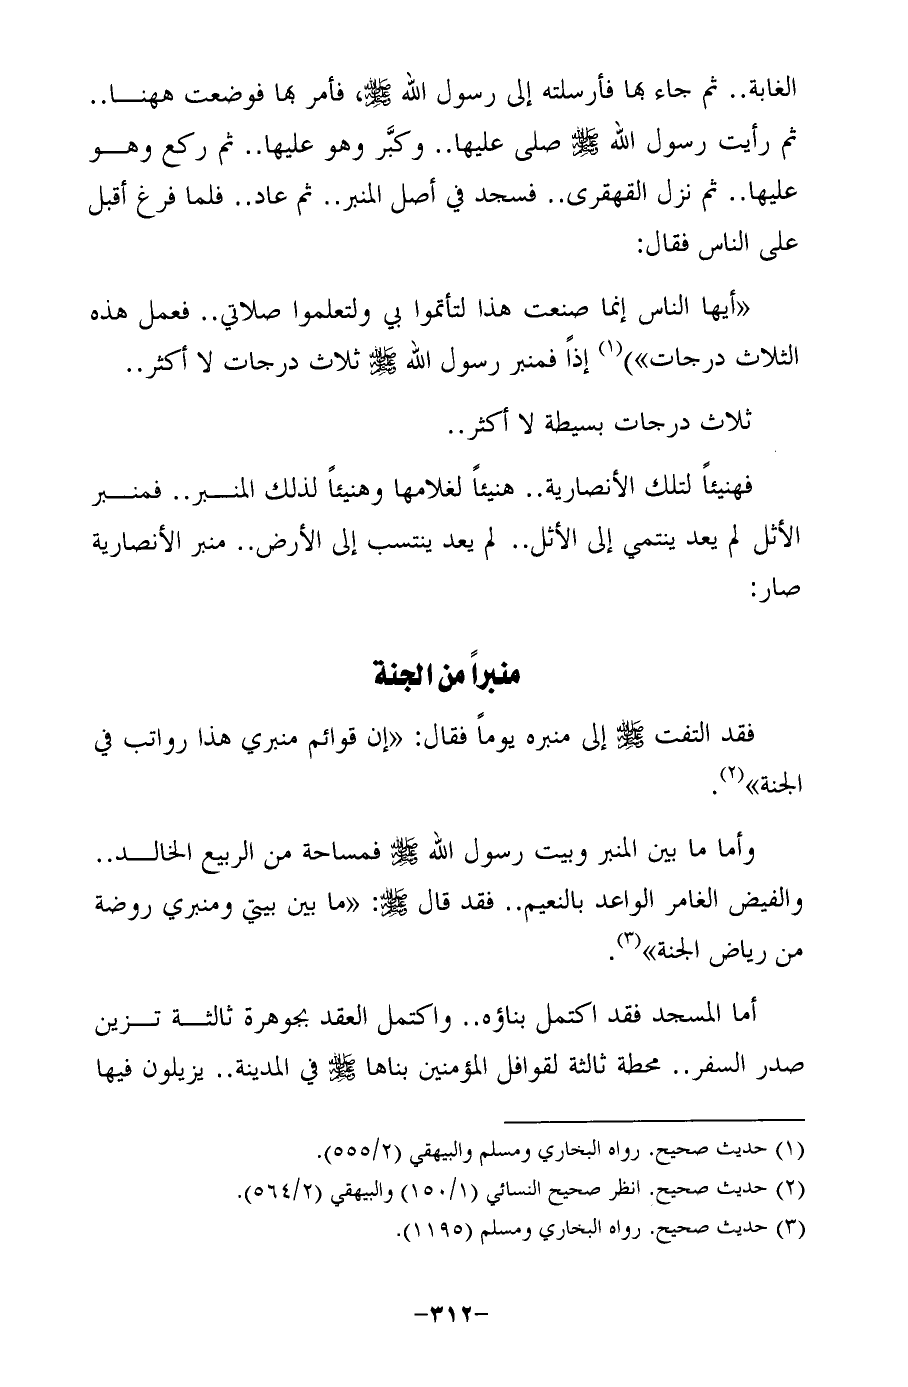 الغابة.. ثم جاء بها فأرسلته إلى رسول الله ﷺ، فأمر بها فوضعت ههنـــا..
ثم رأيت رسول الله ﷺ صلى عليها.. وكبَّر وهو عليها.. ثم ركع وهـــو
عليها.. ثم نزل القهقرى.. فسجد في أصل المنبر.. ثم عاد.. فلما فرغ أقبل
على الناس فقال:
«أيها الناس إنما صنعت هذا لتأتموا بي ولتعلموا صلاتي.. فعمل هذه
الثلاث درجات»)(١) إذاً فمنبر رسول الله ﷺ ثلاث درجات لا أكثر..
ثلاث درجات بسيطة لا أكثر..
فهنيئاً لتلك الأنصارية.. هنيئاً لغلامها وهنيئاً لذلك المنـــبر.. فمنـــبر
الأثل لم يعد ينتمي إلى الأثل.. لم يعد ينتسب إلى الأرض.. منبر الأنصارية
صار:
منبراً من الجنة
فقد التفت ﷺ إلى منبره يوماً فقال: «إن قوائم منبري هذا رواتب في
الجنة»(٢).
وأما ما بين المنبر وبيت رسول الله ﷺ فمساحة من الربيع الخالـــد..
والفيض الغامر الواعد بالنعيم.. فقد قال ﷺ: «ما بين بيتي ومنبري روضة
من رياض الجنة»(٣).
أما المسجد فقد اكتمل بناؤه.. واكتمل العقد بجوهرة ثالثـــة تـــزين
صدر السفر.. محطة ثالثة لقوافل المؤمنين بناها ﷺ في المدينة.. يزيلون فيها
(١) حديث صحيح. رواه البخاري ومسلم والبيهقي (٥٥٥/٢).
(٢) حديث صحيح. انظر صحيح النسائي (١٥٠/١) والبيهقي (٥٦٤/٢).
(٣) حديث صحيح. رواه البخاري ومسلم (١١٩٥).
-٣١٢-